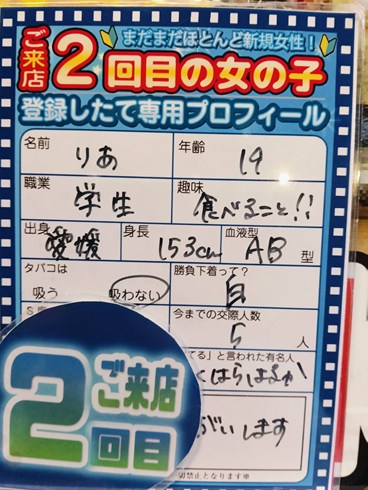 まだまだほとんど新規女性!
ご来店2回目の女の子
登録したて専用プロフィール
名前 りあ 年齢 19
職業 学生 趣味 食べること!!
出身 愛媛 身長 153cm 血液型 AB型
タバコは 勝負下着って?
吸う 吸わない 白
今までの交際人数
5人
てる」と言われた有名人
くはらはるか
います
ご来店
2
回目
切禁止となります※